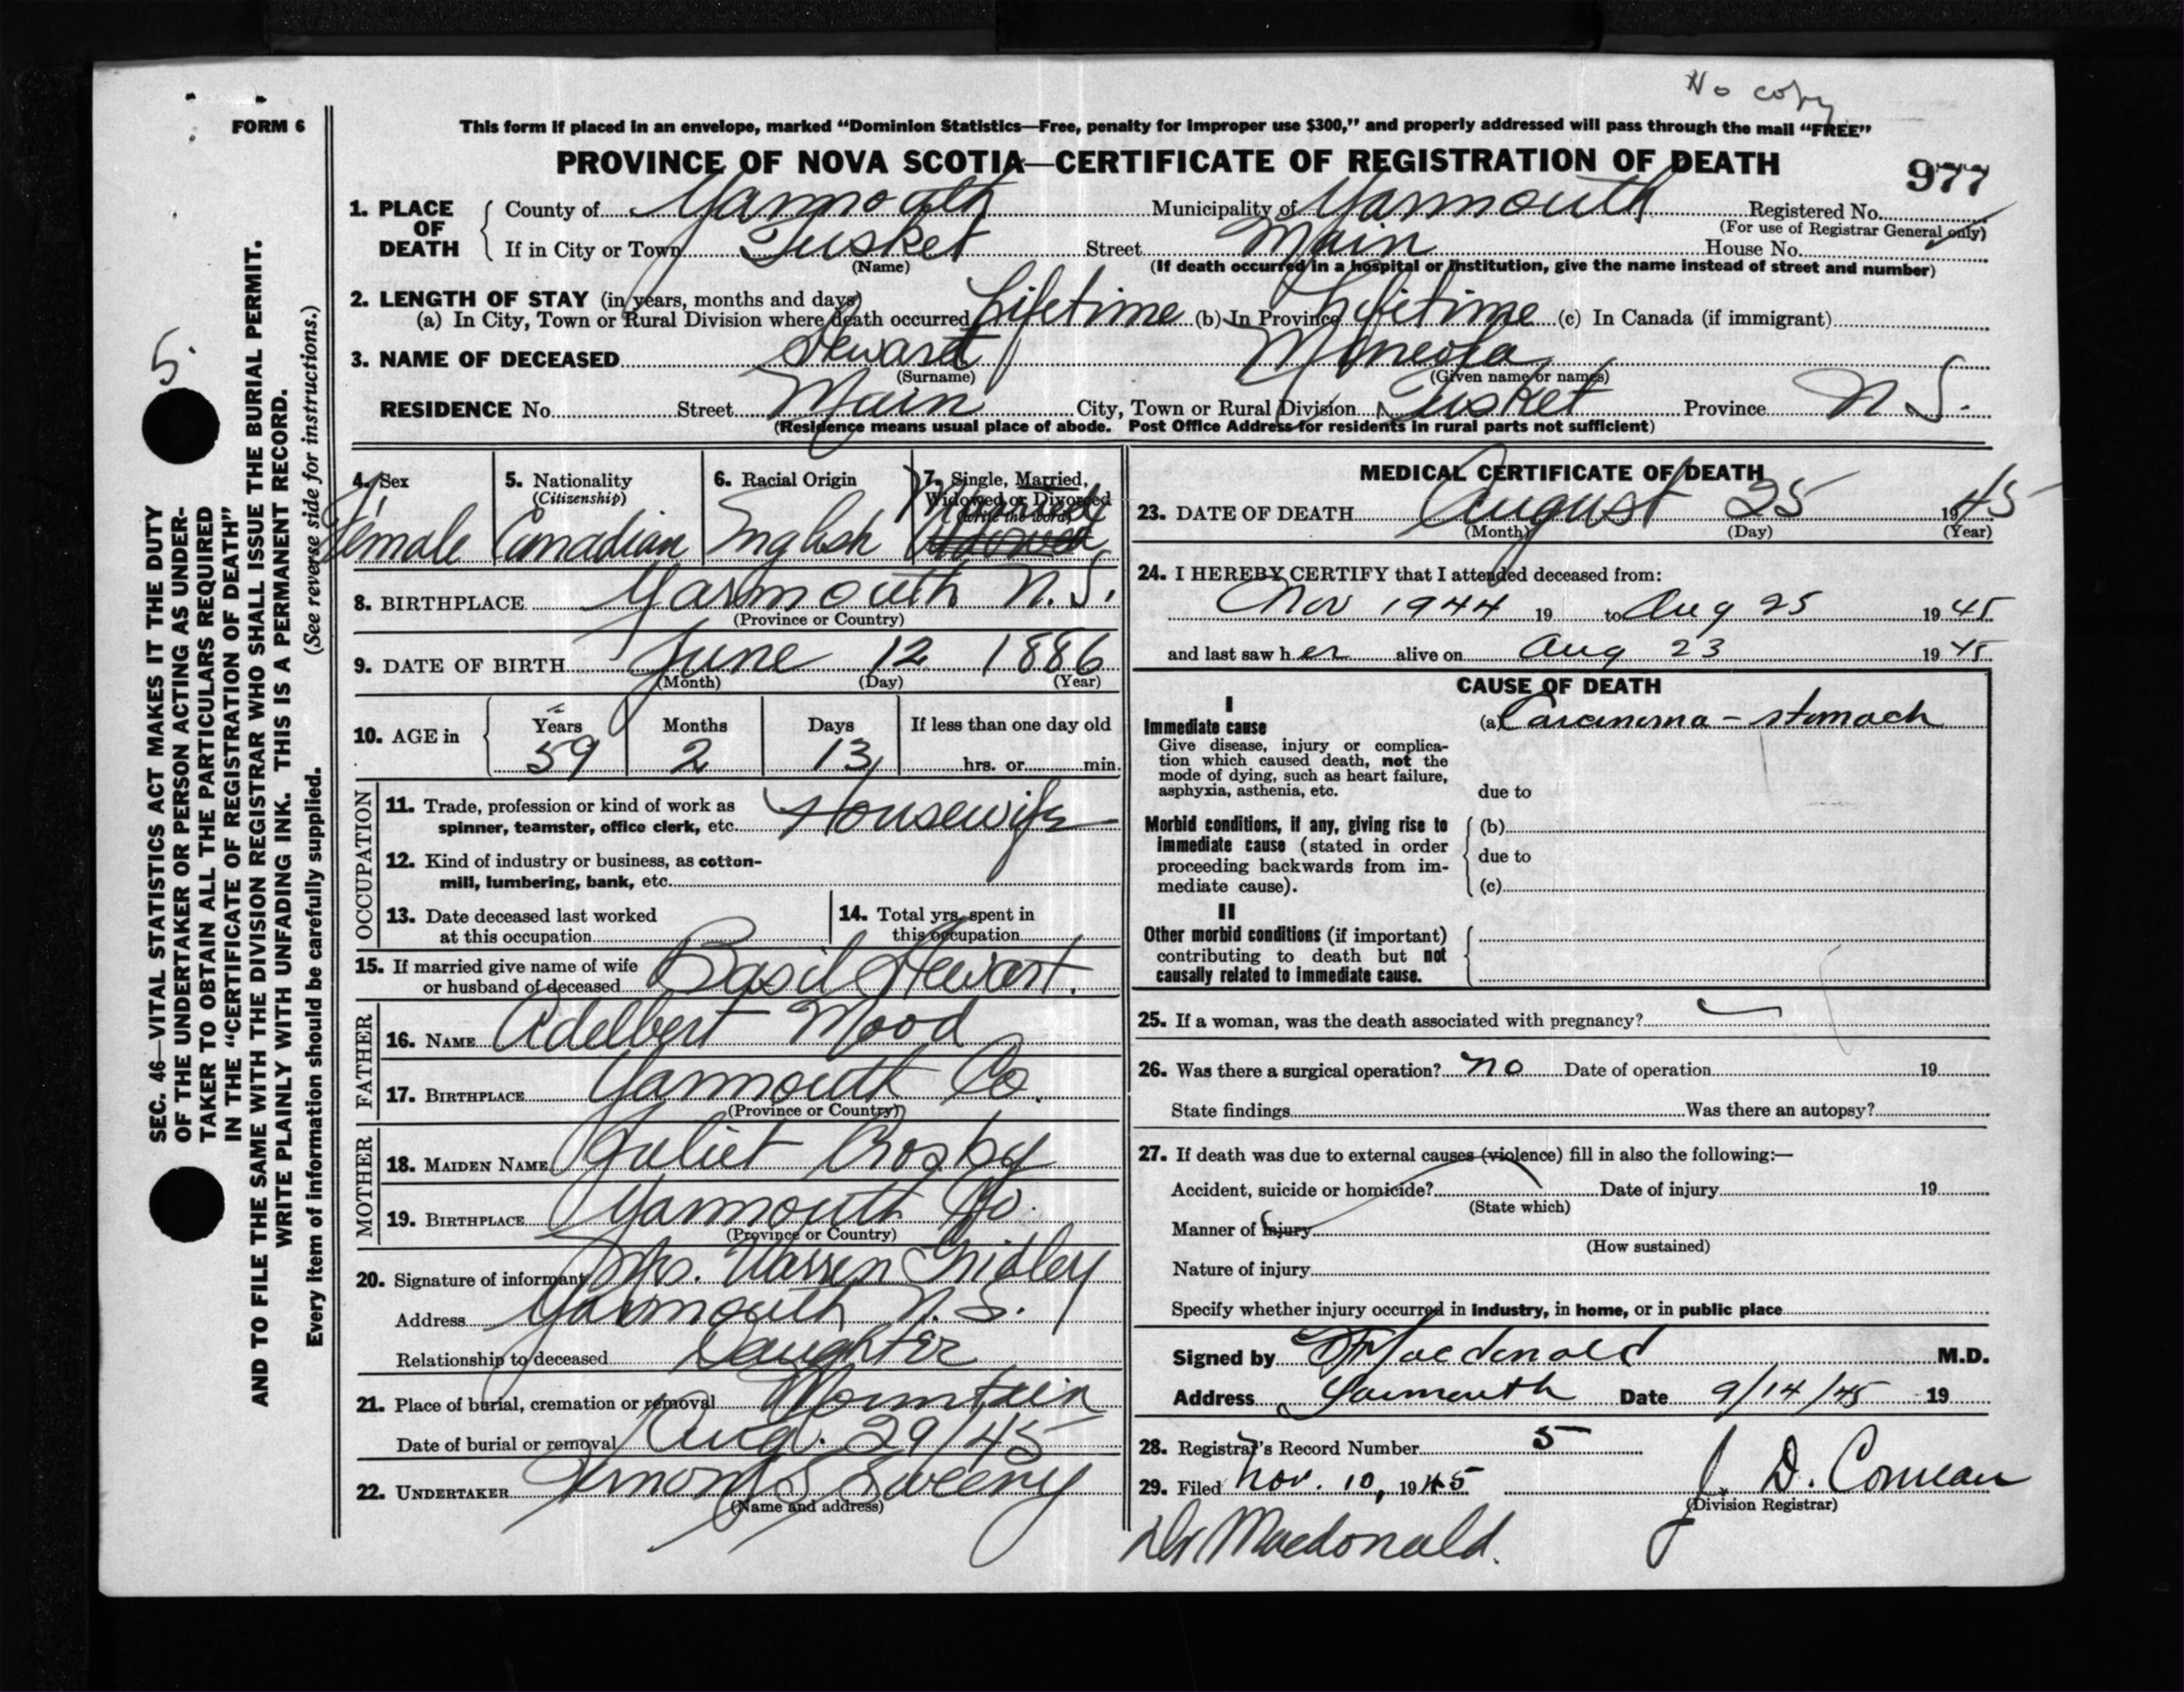 No copy
FORM 6
This form if placed in an envelope, marked “Dominion Statistics—Free, penalty for improper use $300,” and properly addressed will pass through the mail “FREE”
PROVINCE OF NOVA SCOTIA—CERTIFICATE OF REGISTRATION OF DEATH
977
1. PLACE OF DEATH
County of Yarmouth Municipality of Yarmouth Registered No.
(For use of Registrar General only)
If in City or Town Tusket Street Main House No.
(Name) (If death occurred in a hospital or institution, give the name instead of street and number)
2. LENGTH OF STAY (in years, months and days)
(a) In City, Town or Rural Division where death occurred Lifetime (b) In Province Lifetime (c) In Canada (if immigrant)
3. NAME OF DECEASED Stewart Moneola
(Surname) (Given name or names)
RESIDENCE No. Street Main City, Town or Rural Division Tusket Province N S.
(Residence means usual place of abode. Post Office Address for residents in rural parts not sufficient)
4. Sex 5. Nationality 6. Racial Origin 7. Single, Married,
(Citizenship) Widowed or Divorced
(write the word)
Married
Female Canadian English Widowed
8. BIRTHPLACE Yarmouth N.S.
(Province or Country)
9. DATE OF BIRTH June 12 1886
(Month) (Day) (Year)
10. AGE in Years Months Days If less than one day old
59 2 13 hrs. or min.
OCCUPATION
11. Trade, profession or kind of work as
spinner, teamster, office clerk, etc. Housewife
12. Kind of industry or business, as cotton-
mill, lumbering, bank, etc.
13. Date deceased last worked
at this occupation
14. Total yrs. spent in
this occupation
15. If married give name of wife
or husband of deceased Basil Stewart.
FATHER
16. NAME Adelbert Mood
17. BIRTHPLACE Yarmouth Co.
(Province or Country)
MOTHER
18. MAIDEN NAME Juliet Crosby
19. BIRTHPLACE Yarmouth Co.
(Province or Country)
20. Signature of informant Mrs. Warren Gridley
Address Yarmouth N.S.
Relationship to deceased Daughter
21. Place of burial, cremation or removal Mountain
Date of burial or removal Aug. 29/45
22. UNDERTAKER Vernon S Sweeny
(Name and address)
MEDICAL CERTIFICATE OF DEATH
23. DATE OF DEATH August 25 1945
(Month) (Day) (Year)
24. I HEREBY CERTIFY that I attended deceased from:
Nov 1944 19 to Aug 25 1945
and last saw her alive on Aug 23 1945
CAUSE OF DEATH
I
Immediate cause (a) Carcinoma - stomach
Give disease, injury or complica-
tion which caused death, not the
mode of dying, such as heart failure,
asphyxia, asthenia, etc. due to
Morbid conditions, if any, giving rise to (b)
immediate cause (stated in order due to
proceeding backwards from im-
mediate cause). (c)
II
Other morbid conditions (if important)
contributing to death but not
causally related to immediate cause.
25. If a woman, was the death associated with pregnancy?
26. Was there a surgical operation? no Date of operation 19
State findings Was there an autopsy?
27. If death was due to external causes (violence) fill in also the following:—
Accident, suicide or homicide? Date of injury 19
(State which)
Manner of injury
(How sustained)
Nature of injury
Specify whether injury occurred in industry, in home, or in public place
Signed by Macdonald M.D.
Address Yarmouth Date 9/14/45 19
28. Registrar's Record Number 5
29. Filed Nov. 10, 1945 J. D. Comeau
(Division Registrar)
Dr Macdonald.
5.
SEC. 46—VITAL STATISTICS ACT MAKES IT THE DUTY
OF THE UNDERTAKER OR PERSON ACTING AS UNDER-
TAKER TO OBTAIN ALL THE PARTICULARS REQUIRED
IN THE “CERTIFICATE OF REGISTRATION OF DEATH”
AND TO FILE THE SAME WITH THE DIVISION REGISTRAR WHO SHALL ISSUE THE BURIAL PERMIT.
WRITE PLAINLY WITH UNFADING INK. THIS IS A PERMANENT RECORD.
Every item of information should be carefully supplied. (See reverse side for instructions.)